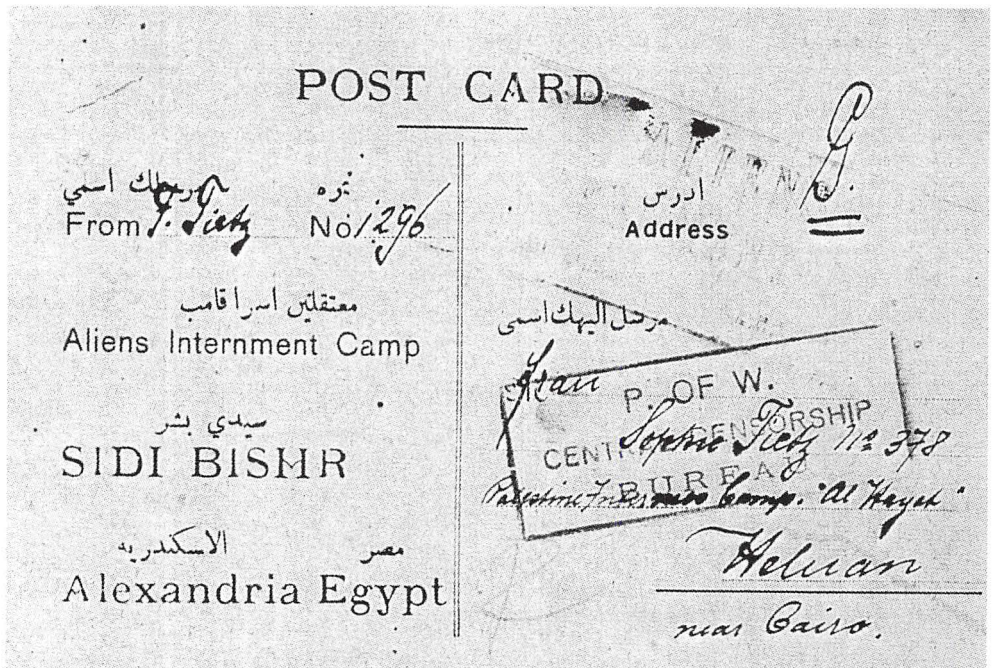 POST CARD
مرسلك اسمي نمره
From T. Tietz No 1296
معتقلين اسرا قامب
Aliens Internment Camp
سيدي بشر
SIDI BISHR
الاسكندريه مصر
Alexandria Egypt
ادرس
Address
مرسل اليهك اسمى
Frau
P. OF W.
CENTRAL CENSORSHIP
BUREAU
Sophie Tietz No 378
Palestine Internees Camp. "Al Hayat"
Heluan
near Cairo.